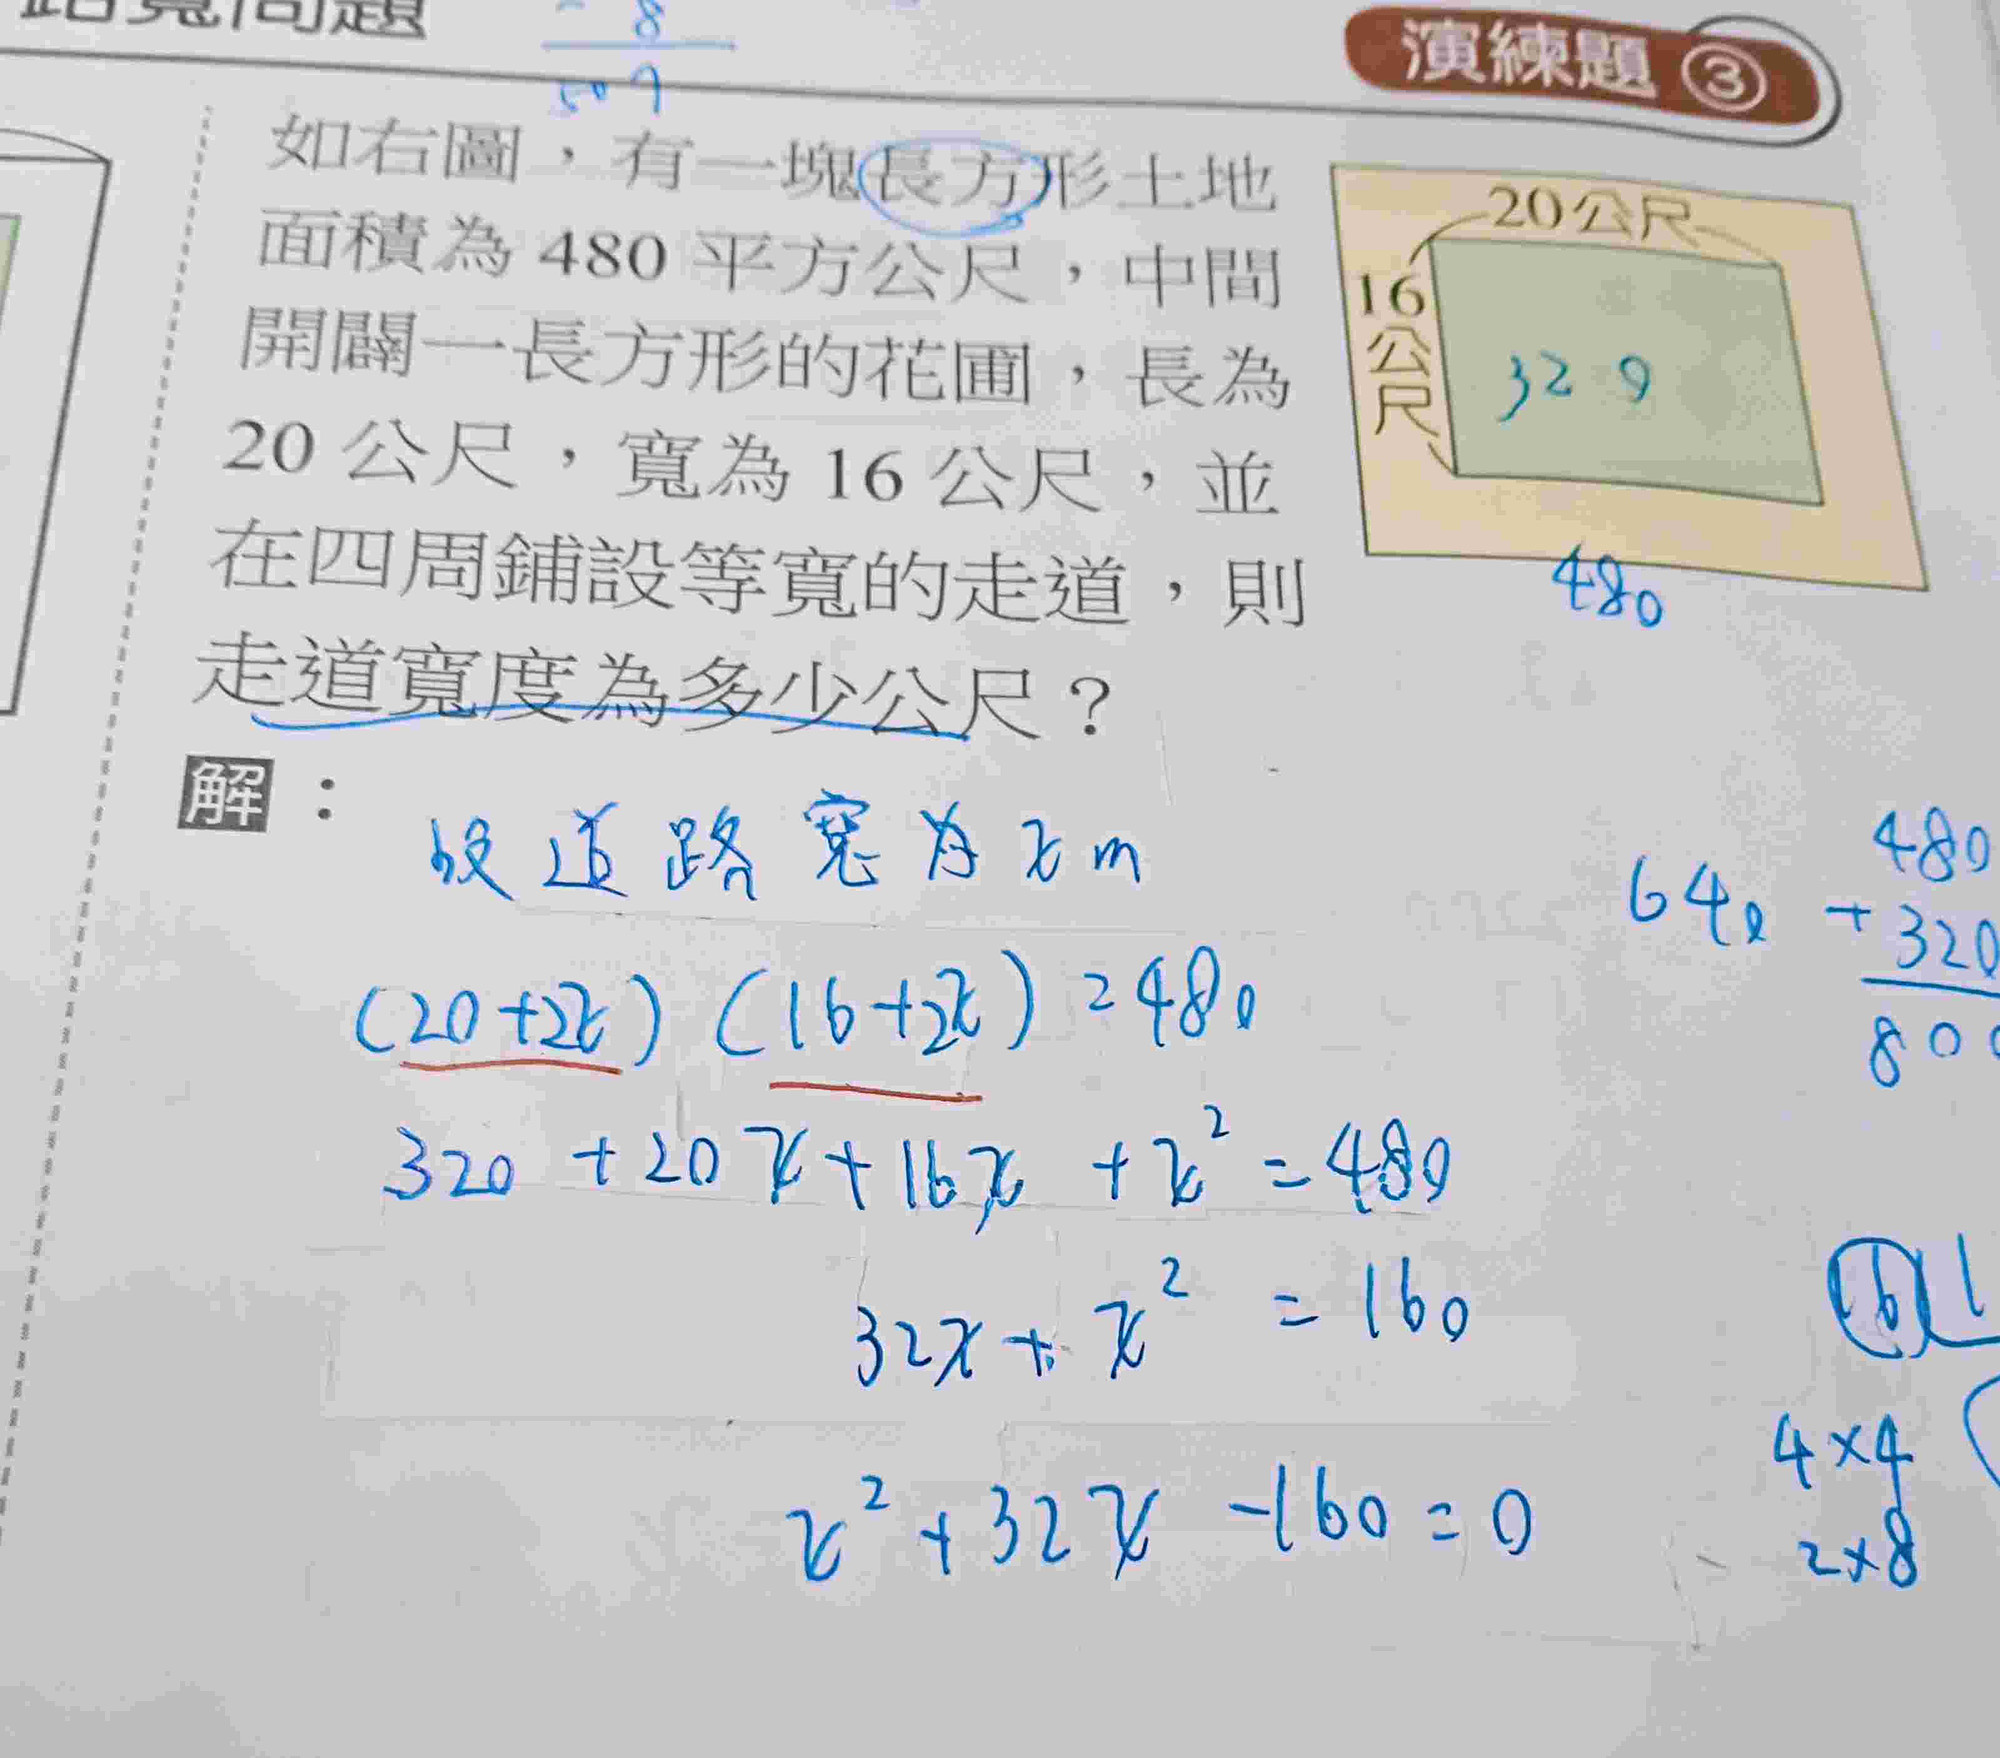 路寬問題
8
507
演練題 ③
如右圖，有一塊長方形土地
面積為 480 平方公尺，中間
開闢一長方形的花圃，長為
20 公尺，寬為 16 公尺，並
在四周鋪設等寬的走道，則
走道寬度為多少公尺？
20公尺
16公尺
320
480
解：
設道路寬為 x m
(20+2x) (16+2x) = 480
320 + 20x + 16x + x² = 480
32x + x² = 160
x² + 32x - 160 = 0
640
480
+ 320
800
16
4×4
2×8